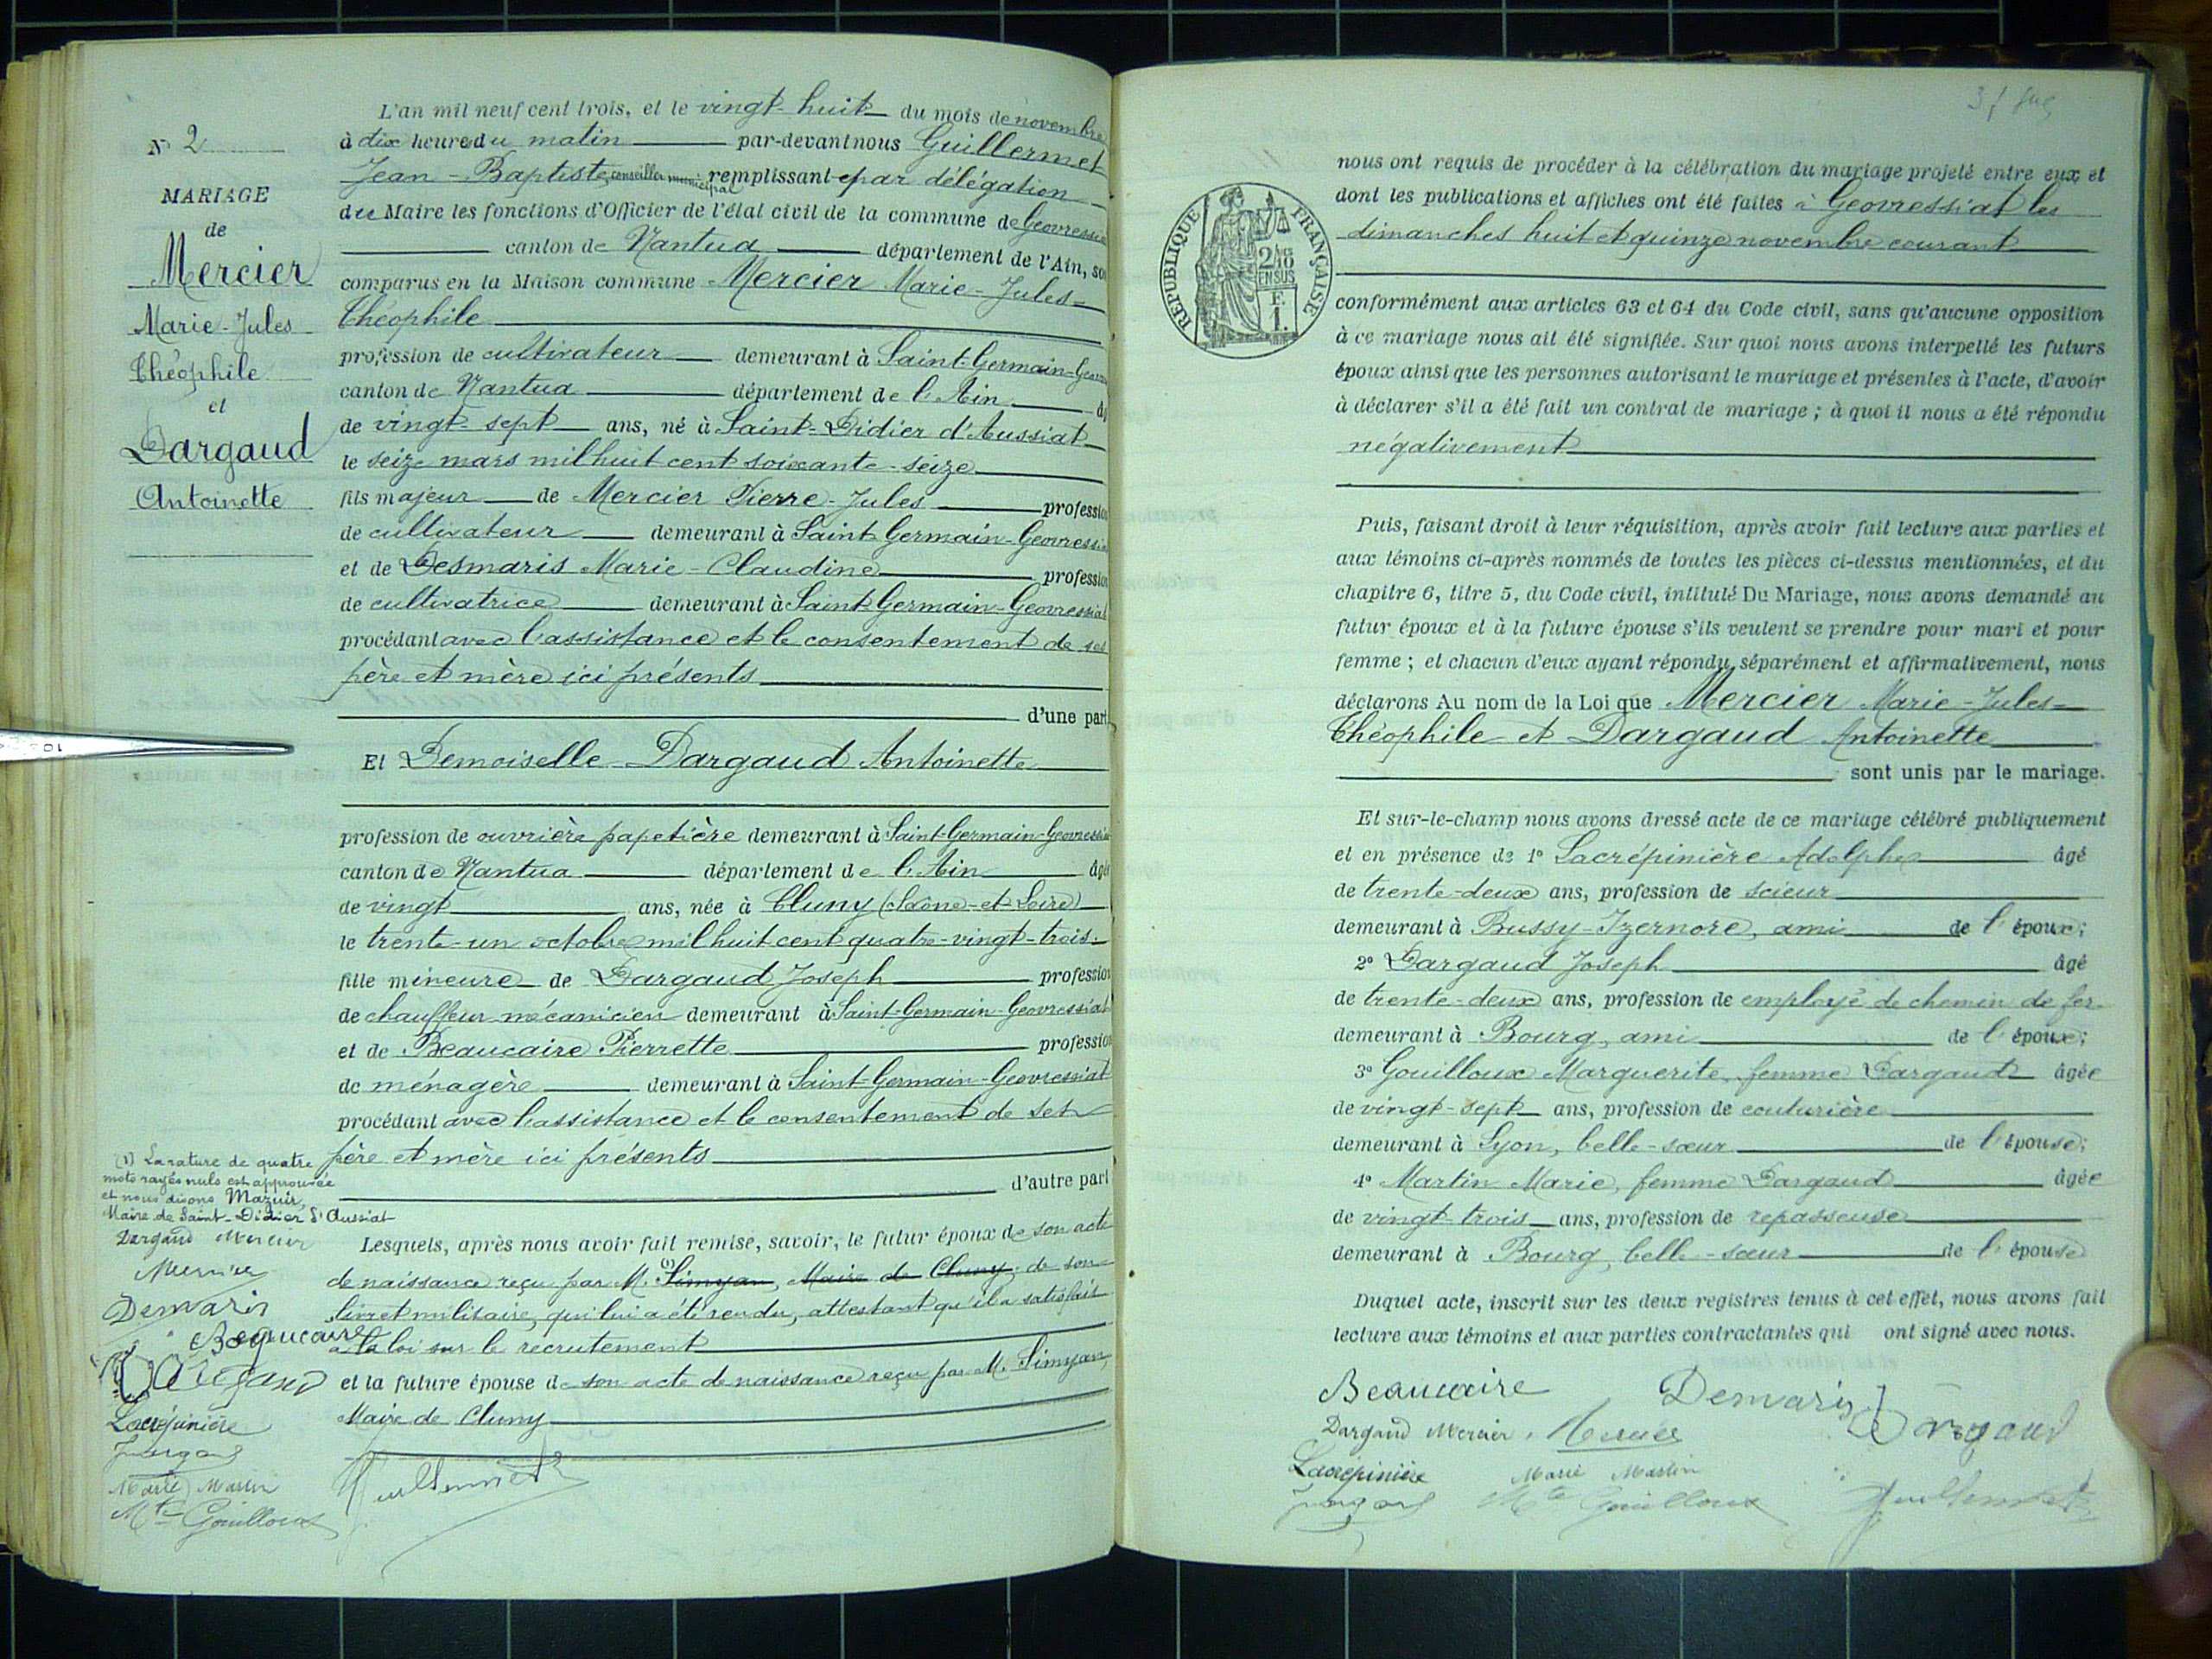 N° 2
MARIAGE
de
Mercier
Marie-Jules
Théophile
et
Dargaud
Antoinette
L'an mil neuf cent trois, et le vingt-huit du mois de novembre
à dix heure du matin par-devant nous Guillermet
Jean-Baptiste, conseiller municipal remplissant par délégation
du Maire les fonctions d'Officier de l'état civil de la commune de Geovressiat
canton de Nantua département de l'Ain, sont
comparus en la Maison commune Mercier Marie-Jules-
Théophile
profession de cultivateur demeurant à Saint-Germain-Geovressiat
canton de Nantua département de l'Ain
de vingt-sept ans, né à Saint-Didier d'Aussiat
le seize mars mil huit cent soixante-seize
fils majeur de Mercier Pierre-Jules profession
de cultivateur demeurant à Saint Germain-Geovressiat
et de Desmaris Marie-Claudine profession
de cultivatrice demeurant à Saint Germain-Geovressiat
procédant avec l'assistance et le consentement de ses
père et mère ici présents
d'une part
Et Demoiselle Dargaud Antoinette
profession de ouvrière papetière demeurant à Saint-Germain-Geovressiat
canton de Nantua département de l'Ain âgée
de vingt ans, née à Cluny (Saône-et-Loire)
le trente-un octobre mil huit cent quatre-vingt-trois
fille mineure de Dargaud Joseph profession
de chauffeur mécanicien demeurant à Saint-Germain-Geovressiat
et de Beaucaire Pierrette profession
de ménagère demeurant à Saint-Germain-Geovressiat
procédant avec l'assistance et le consentement de ses
père et mère ici présents
d'autre part
(1) La rature de quatre
mots rayés nuls est approuvée
et nous disons Mazuir,
Maire de Saint-Didier d'Aussiat
Dargaud Mercier
Mercier
Demaris
Beaucaire
Dargaud
Lacrépinière
Dargaud
Marie Martin
Mte Gouilloux
Lesquels, après nous avoir fait remise, savoir, le futur époux de son acte
de naissance reçu par M. (1) Simyan, Maire de Cluny, de son
livret militaire, qui lui a été rendu, attestant qu'il a satisfait
à la loi sur le recrutement
et la future épouse de son acte de naissance reçu par M. Simyan,
Maire de Cluny
Guillermet
nous ont requis de procéder à la célébration du mariage projeté entre eux, et
dont les publications et affiches ont été faites à Geovressiat les
dimanches huit et quinze novembre courant
RÉPUBLIQUE FRANÇAISE
2/10
EN SUS
F.
1.
conformément aux articles 63 et 64 du Code civil, sans qu'aucune opposition
à ce mariage nous ait été signifiée. Sur quoi nous avons interpellé les futurs
époux ainsi que les personnes autorisant le mariage et présentes à l'acte, d'avoir
à déclarer s'il a été fait un contrat de mariage ; à quoi il nous a été répondu
négativement
Puis, faisant droit à leur réquisition, après avoir fait lecture aux parties et
aux témoins ci-après nommés de toutes les pièces ci-dessus mentionnées, et du
chapitre 6, titre 5, du Code civil, intitulé Du Mariage, nous avons demandé au
futur époux et à la future épouse s'ils veulent se prendre pour mari et pour
femme ; et chacun d'eux ayant répondu séparément et affirmativement, nous
déclarons Au nom de la Loi que Mercier Marie-Jules-
Théophile et Dargaud Antoinette
sont unis par le mariage.
Et sur-le-champ nous avons dressé acte de ce mariage célébré publiquement
et en présence de 1° Lacrépinière Adolphe âgé
de trente-deux ans, profession de scieur
demeurant à Bussy-Izernore, ami de l'époux;
2° Dargaud Joseph âgé
de trente-deux ans, profession de employé de chemin de fer
demeurant à Bourg, ami de l'époux;
3° Gouilloux Marguerite, femme Dargaud âgée
de vingt-sept ans, profession de couturière
demeurant à Lyon, belle-sœur de l'épouse;
4° Martin Marie, femme Dargaud âgée
de vingt-trois ans, profession de repasseuse
demeurant à Bourg, belle-sœur de l'épouse
Duquel acte, inscrit sur les deux registres tenus à cet effet, nous avons fait
lecture aux témoins et aux parties contractantes qui ont signé avec nous.
Beaucaire Demaris Dargaud
Dargaud Mercier Mercier
Lacrépinière Marie Martin
Dargaud Mte Gouilloux Guillermet